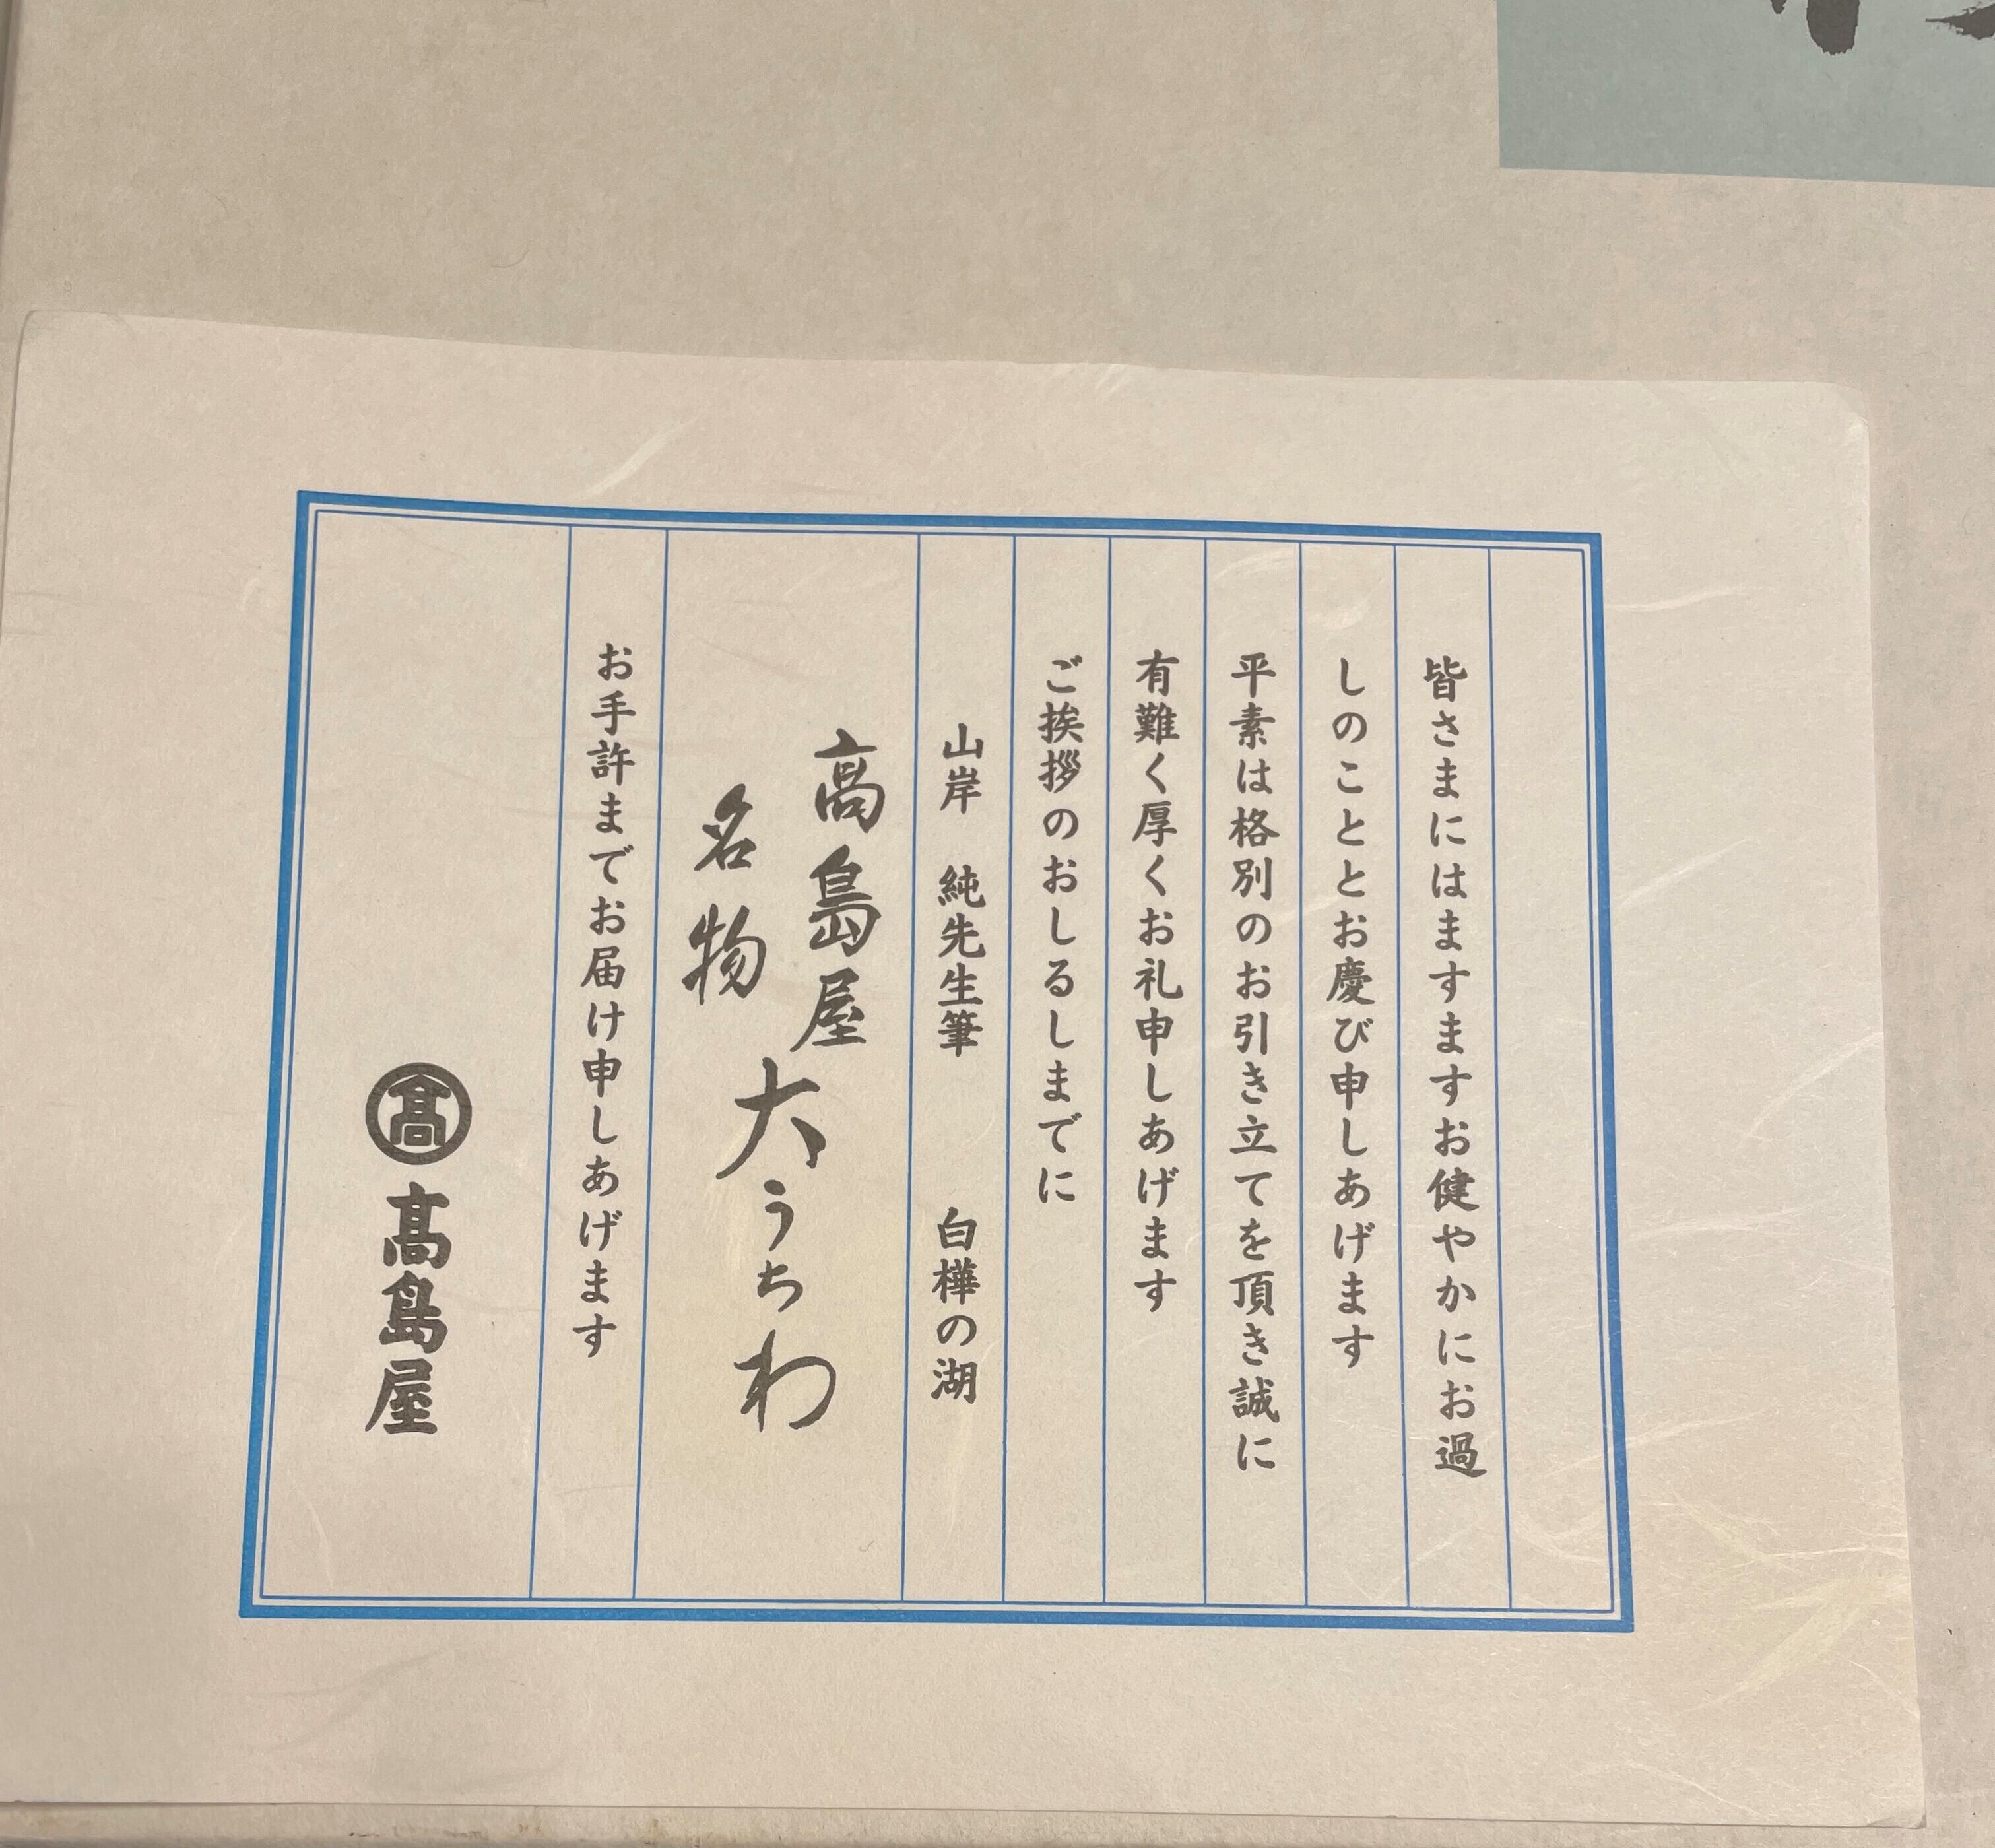 皆さまにはますますお健やかにお過
しのこととお慶び申しあげます
平素は格別のお引き立てを頂き誠に
有難く厚くお礼申しあげます
ご挨拶のおしるしまでに
山岸 純先生筆 白樺の湖
高島屋
名物
大うちわ
お手許までお届け申しあげます
髙 髙島屋